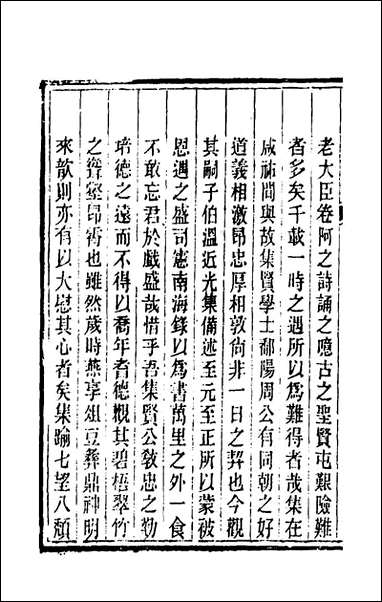 老大臣卷阿之詩誦之噫古之聖賢屯艱險難
者多矣千載一時之遇所以為難得者哉集在
咸祐間與故集賢學士鄱陽周公有同朝之好
道義相激昂忠厚相敦尙非一日之契也今觀
其嗣子伯溫近光集備述至元至正所以蒙被
恩遇之盛司憲南海錄以為書萬里之外一食
不敢忘君於戲盛哉惜乎吾集賢公敎忠之勤
培德之遠而不得以喬年耆德觀其碧梧翠竹
之聳壑昂霄也雖然歲時燕享俎豆彞鼎神明
來歆則亦有以大慰其心者矣集踰七望八頹